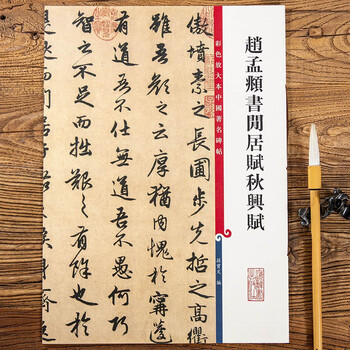 趙孟頫書閒居賦秋興賦
彩色放大本中國著名碑帖
孫寶文 編
傲墳素之長圃步先哲之高衢
雖吾顏之云厚猶內愧於寗蘧
有道吾不仕無道吾不愚何巧
智之不足而拙艱之有餘也於